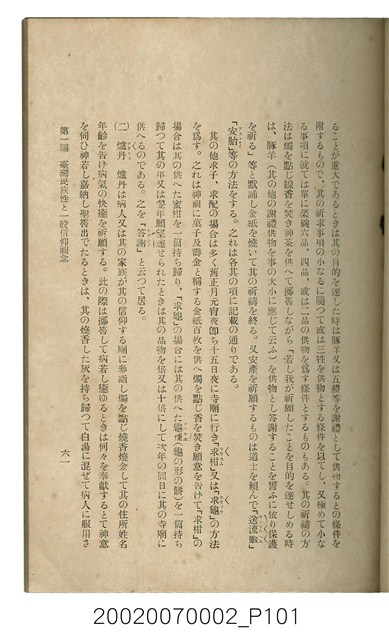 ることが重大であるときは其の目的を達した時は豚羊又は五禮等を謝禮として供物するとの條件を
附するもので、其の祈求事項の小なるに隨つて或は三牲を供物とする條件を以てし、又極めて小な
る事項に就ては單に菜碗六品、四品、或は二品の供物を爲す條件とするものもある。其の祈禱の方
法は燭を點じ線香を焚き神茶を供へて擲筶しながら「若し我が祈願したことを目的を達せしめる時
は、豚羊(其の他の謝禮供物を事の大小に應じて云ふ)を供物とし答謝することを誓ふに依り保護
を祈る」等と默誦し金紙を燒いて其の祈禱を終る。又安產を祈願するものは道士を賴んで「送流蝦」
「安胎」等の方法をする。之れは各其の項に記載の通りである。
其の他求子、求配の場合は多く舊正月元宵夜卽ち十五日夜に寺廟に行き「求柑」又は「求龜」の方法
を爲す。之れは神前に菓子及壽金と稱する金紙百枚を供へ燭を點じ香を焚き願意を告げて「求柑」の
場合は其の供へた蜜柑を一箇持ち歸り、「求龜」の場合には其の供へた龜粿(龜の形の餅)を一箇持ち
歸つて其の年又は翌年願望遂せられたときは其の品物を倍又は十倍にして次年の同日に其の寺廟に
供へるのである。之を「答謝」と云つて居る。
(二) 爐丹 爐丹は病人又は其の家族が其の信仰する廟に參詣し燭を點じ燒香燒金して其の住所姓名
年齡を告げ病氣の快癒を祈願する。此の際は擲筶して病若し癒ゆるときは何々を奉獻するとて神意
を伺ひ神若し嘉納し聖筶出でたるときは、其の燒香した灰を持ち歸つて白湯に混ぜて病人に服用さ
第一編 臺灣民族性と一般信仰觀念
六一
20020070002_P101